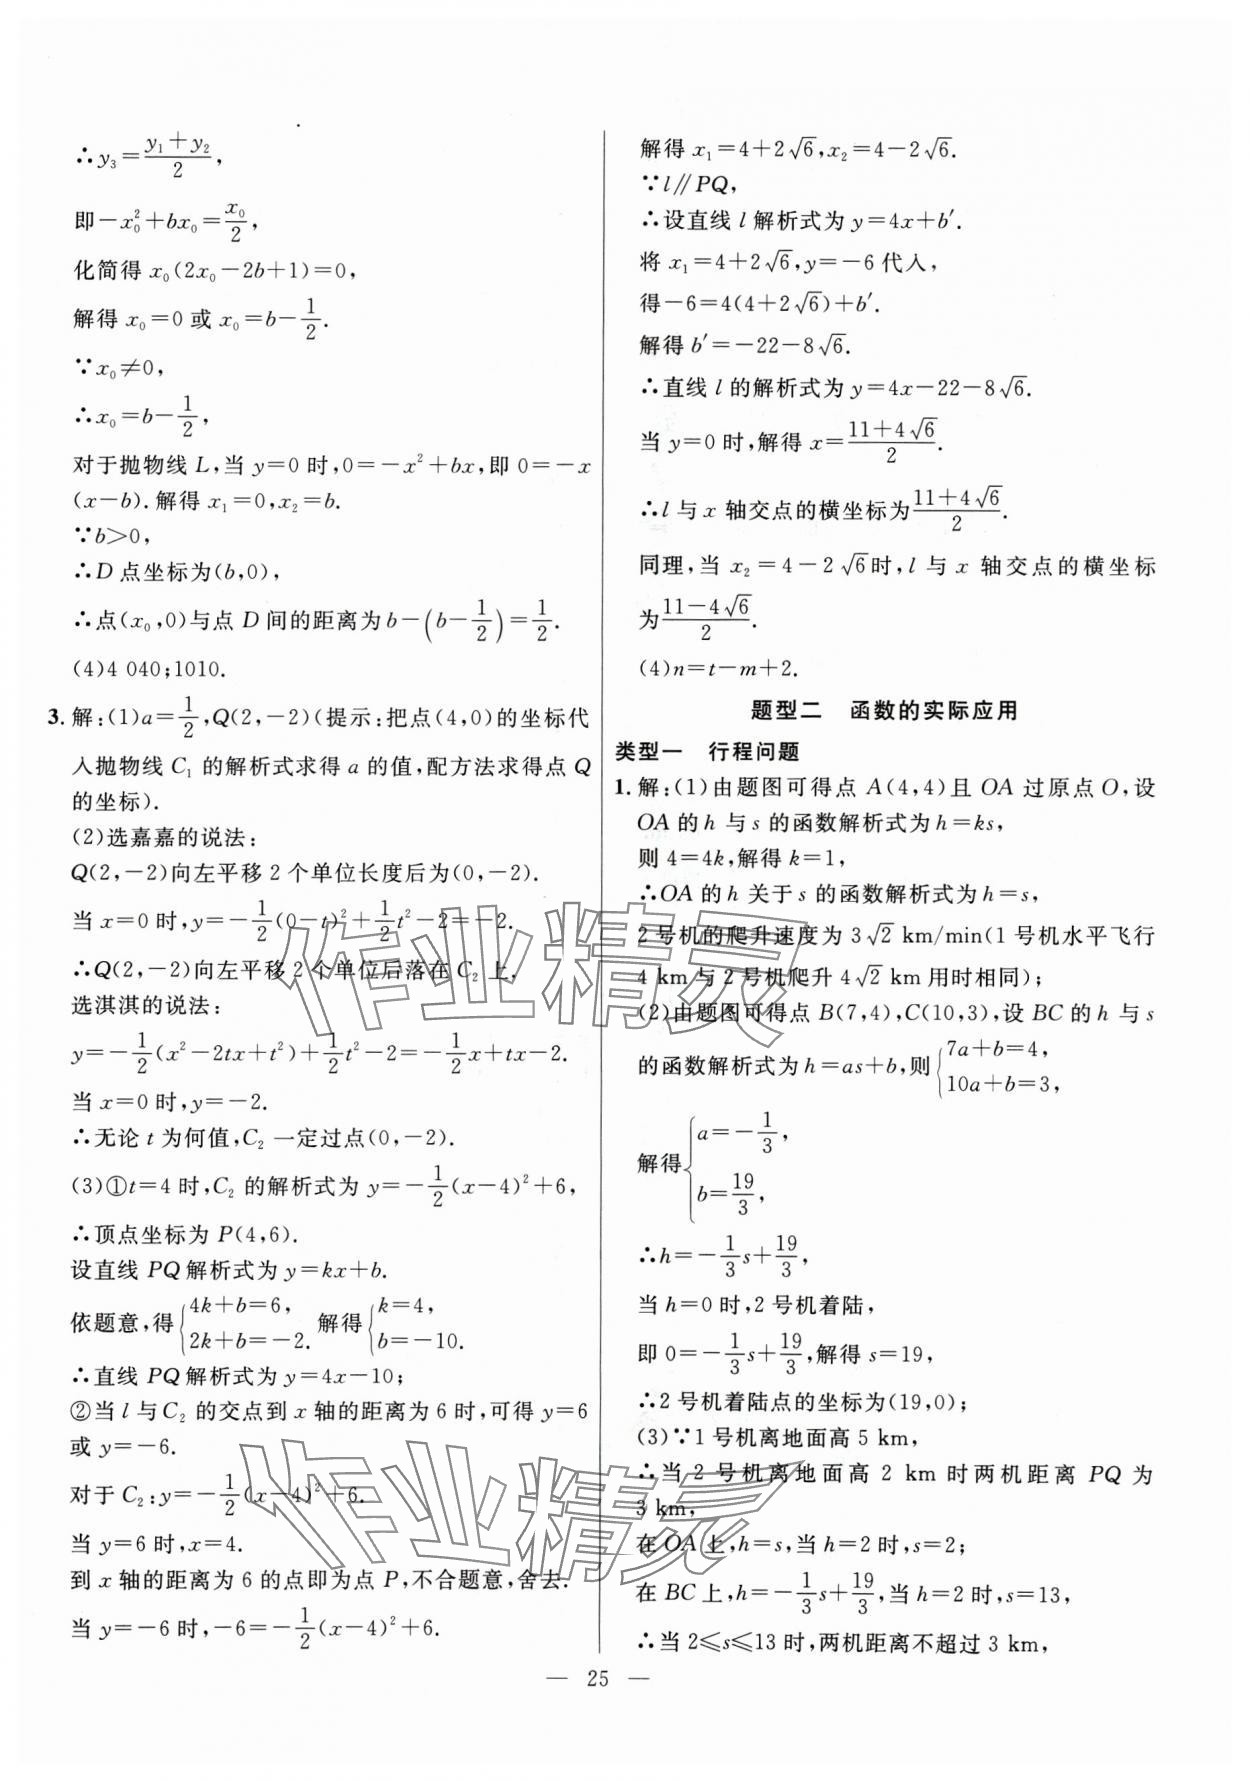 ∴y₃=(y₁+y₂)/2,
即－x₀²+bx₀=x₀/2,
化简得 x₀(2x₀－2b+1)=0,
解得 x₀=0 或 x₀=b－1/2.
∵x₀≠0,
∴x₀=b－1/2,
对于抛物线 L,当 y=0 时,0=－x²+bx,即 0=－x
(x－b).解得 x₁=0,x₂=b.
∵b>0,
∴D 点坐标为(b,0),
∴点(x₀,0)与点 D 间的距离为 b－(b－1/2)=1/2.
(4)4 040;1010.
3.解:(1)a=1/2,Q(2,－2)(提示:把点(4,0)的坐标代
入抛物线 C₁ 的解析式求得 a 的值,配方法求得点 Q
的坐标).
(2)选嘉嘉的说法:
Q(2,－2)向左平移 2 个单位长度后为(0,－2).
当 x=0 时,y=－1/2(0－t)²+1/2t²－2=－2.
∴Q(2,－2)向左平移 2 个单位后落在 C₂ 上,
选淇淇的说法:
y=－1/2(x²－2tx+t²)+1/2t²－2=－1/2x+tx－2.
当 x=0 时,y=－2.
∴无论 t 为何值,C₂ 一定过点(0,－2).
(3)①t=4 时,C₂ 的解析式为 y=－1/2(x－4)²+6,
∴顶点坐标为 P(4,6).
设直线 PQ 解析式为 y=kx+b.
依题意,得{4k+b=6, 2k+b=－2. 解得{k=4, b=－10.
∴直线 PQ 解析式为 y=4x－10;
②当 l 与 C₂ 的交点到 x 轴的距离为 6 时,可得 y=6
或 y=－6.
对于 C₂:y=－1/2(x－4)²+6.
当 y=6 时,x=4.
到 x 轴的距离为 6 的点即为点 P,不合题意,舍去.
当 y=－6 时,－6=－1/2(x－4)²+6.
解得 x₁=4+2√6,x₂=4－2√6.
∵l∥PQ,
∴设直线 l 解析式为 y=4x+b′.
将 x₁=4+2√6,y=－6 代人,
得－6=4(4+2√6)+b′.
解得 b′=－22－8√6.
∴直线 l 的解析式为 y=4x－22－8√6.
当 y=0 时,解得 x=(11+4√6)/2.
∴l 与 x 轴交点的横坐标为(11+4√6)/2.
同理,当 x₂=4－2√6时,l 与 x 轴交点的横坐标
为(11－4√6)/2.
(4)n=t－m+2.
题型二 函数的实际应用
类型一 行程问题
1.解:(1)由题图可得点 A(4,4)且 OA 过原点 O,设
OA 的 h 与 s 的函数解析式为 h=ks,
则 4=4k,解得 k=1,
∴OA 的 h 关于 s 的函数解析式为 h=s,
2 号机的爬升速度为 3√2 km/min(1 号机水平飞行
4 km 与 2 号机爬升 4√2 km 用时相同);
(2)由题图可得点 B(7,4),C(10,3),设 BC 的 h 与 s
的函数解析式为 h=as+b,则{7a+b=4, 10a+b=3,
解得{a=－1/3, b=19/3,
∴h=－1/3s+19/3,
当 h=0 时,2 号机着陆,
即 0=－1/3s+19/3,解得 s=19,
∴2 号机着陆点的坐标为(19,0);
(3)∵1 号机离地面高 5 km,
∴当 2 号机离地面高 2 km 时两机距离 PQ 为
3 km,
在 OA 上,h=s,当 h=2 时,s=2;
在 BC 上,h=－1/3s+19/3,当 h=2 时,s=13,
∴当 2≤s≤13 时,两机距离不超过 3 km,
— 25 —
作业精灵
作业精灵